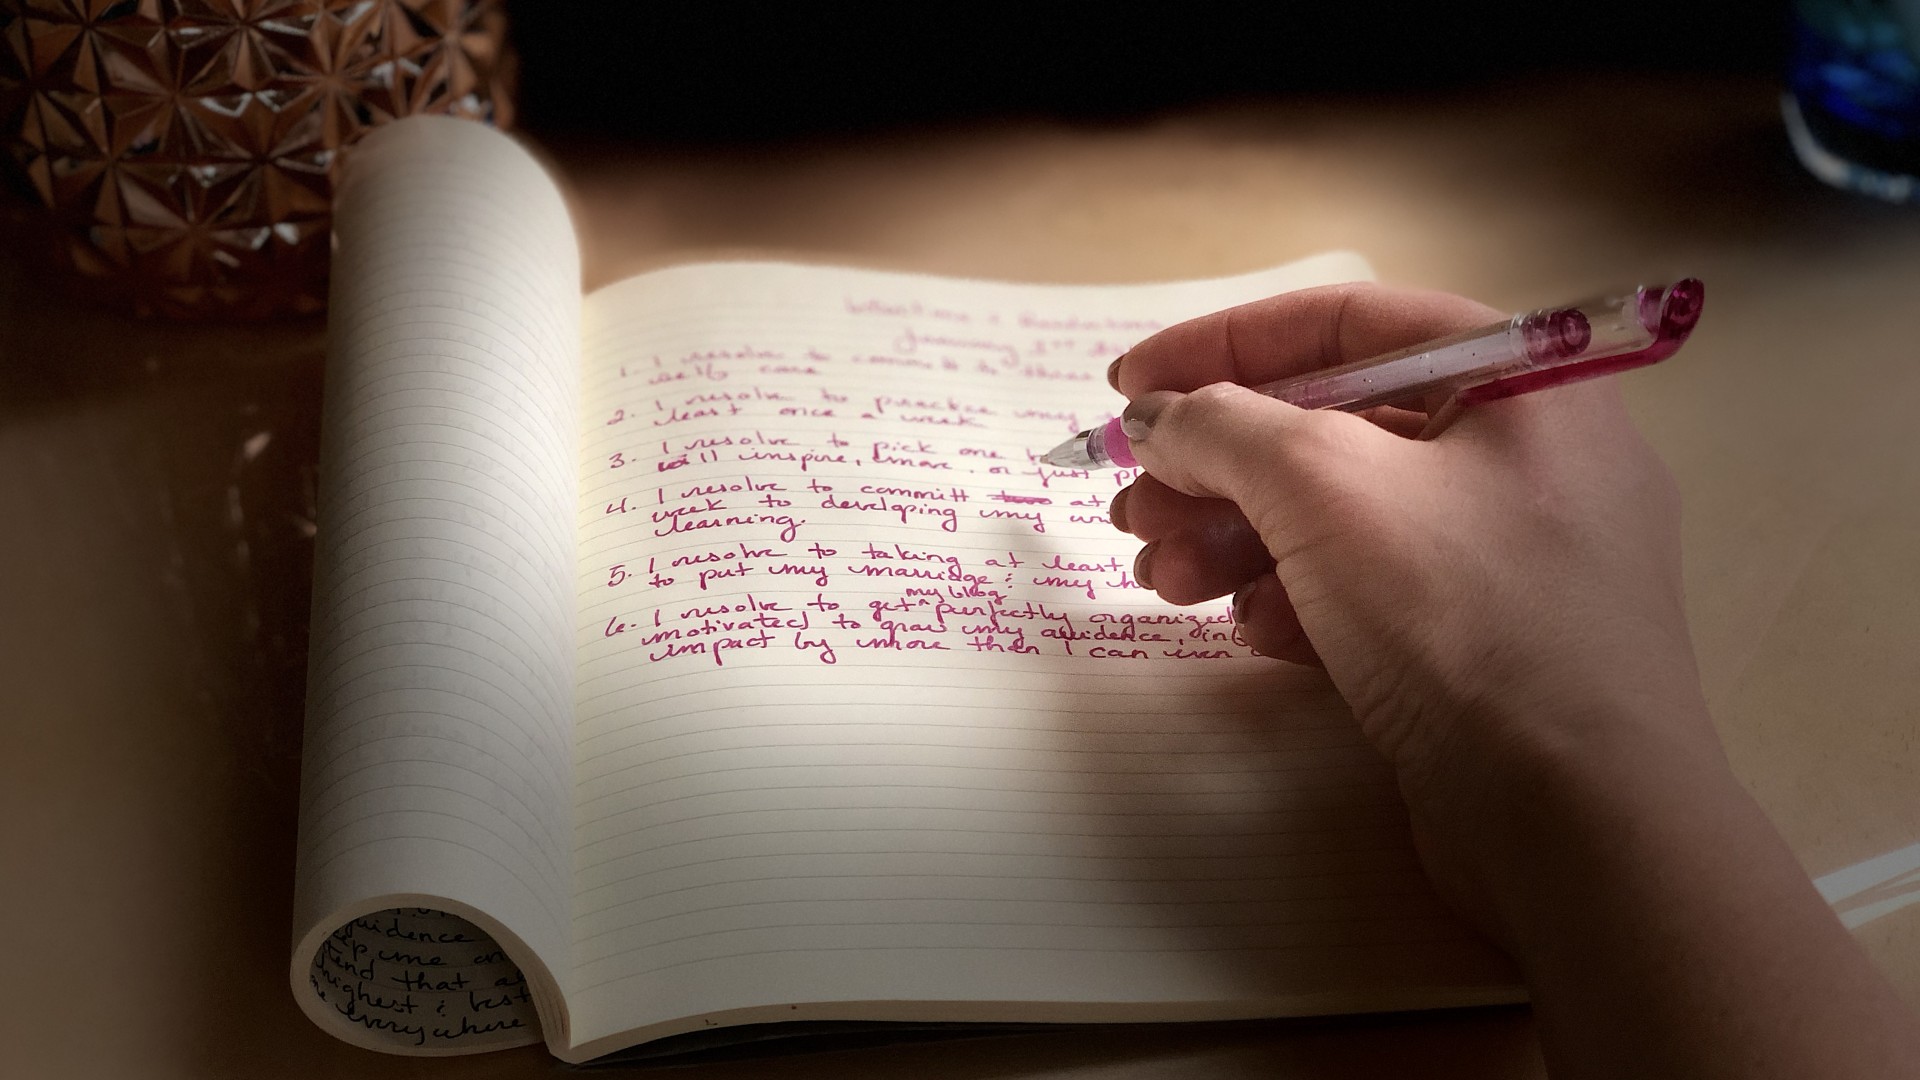 Intentions & Resolutions
January 1st
1. I resolve to committ to three
self care
2. I resolve to practice my
least once a week
3. I resolve to pick one
will inspire, or just
4. I resolve to committ at
week to developing my
learning.
5. I resolve to taking at least
to put my marriage & my
my blog
6. I resolve to get ^ perfectly organized
motivated to grow my audience,
impact by more then I can even
guidence
me
that
highest & best
everywhere